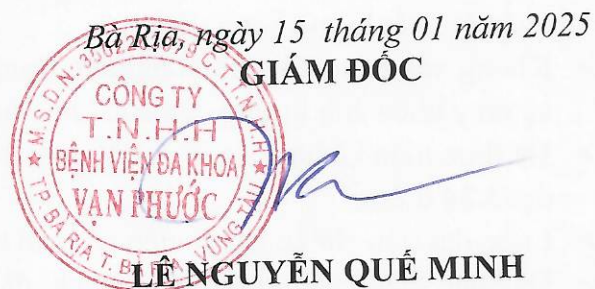 Bà Rịa, ngày 15 tháng 01 năm 2025
GIÁM ĐỐC
CÔNG TY
T.N.H.H
BỆNH VIỆN ĐA KHOA
VẠN PHƯỚC
TP. BÀ RỊA T. BÀ RỊA - VŨNG TÀU
LÊ NGUYỄN QUẾ MINH